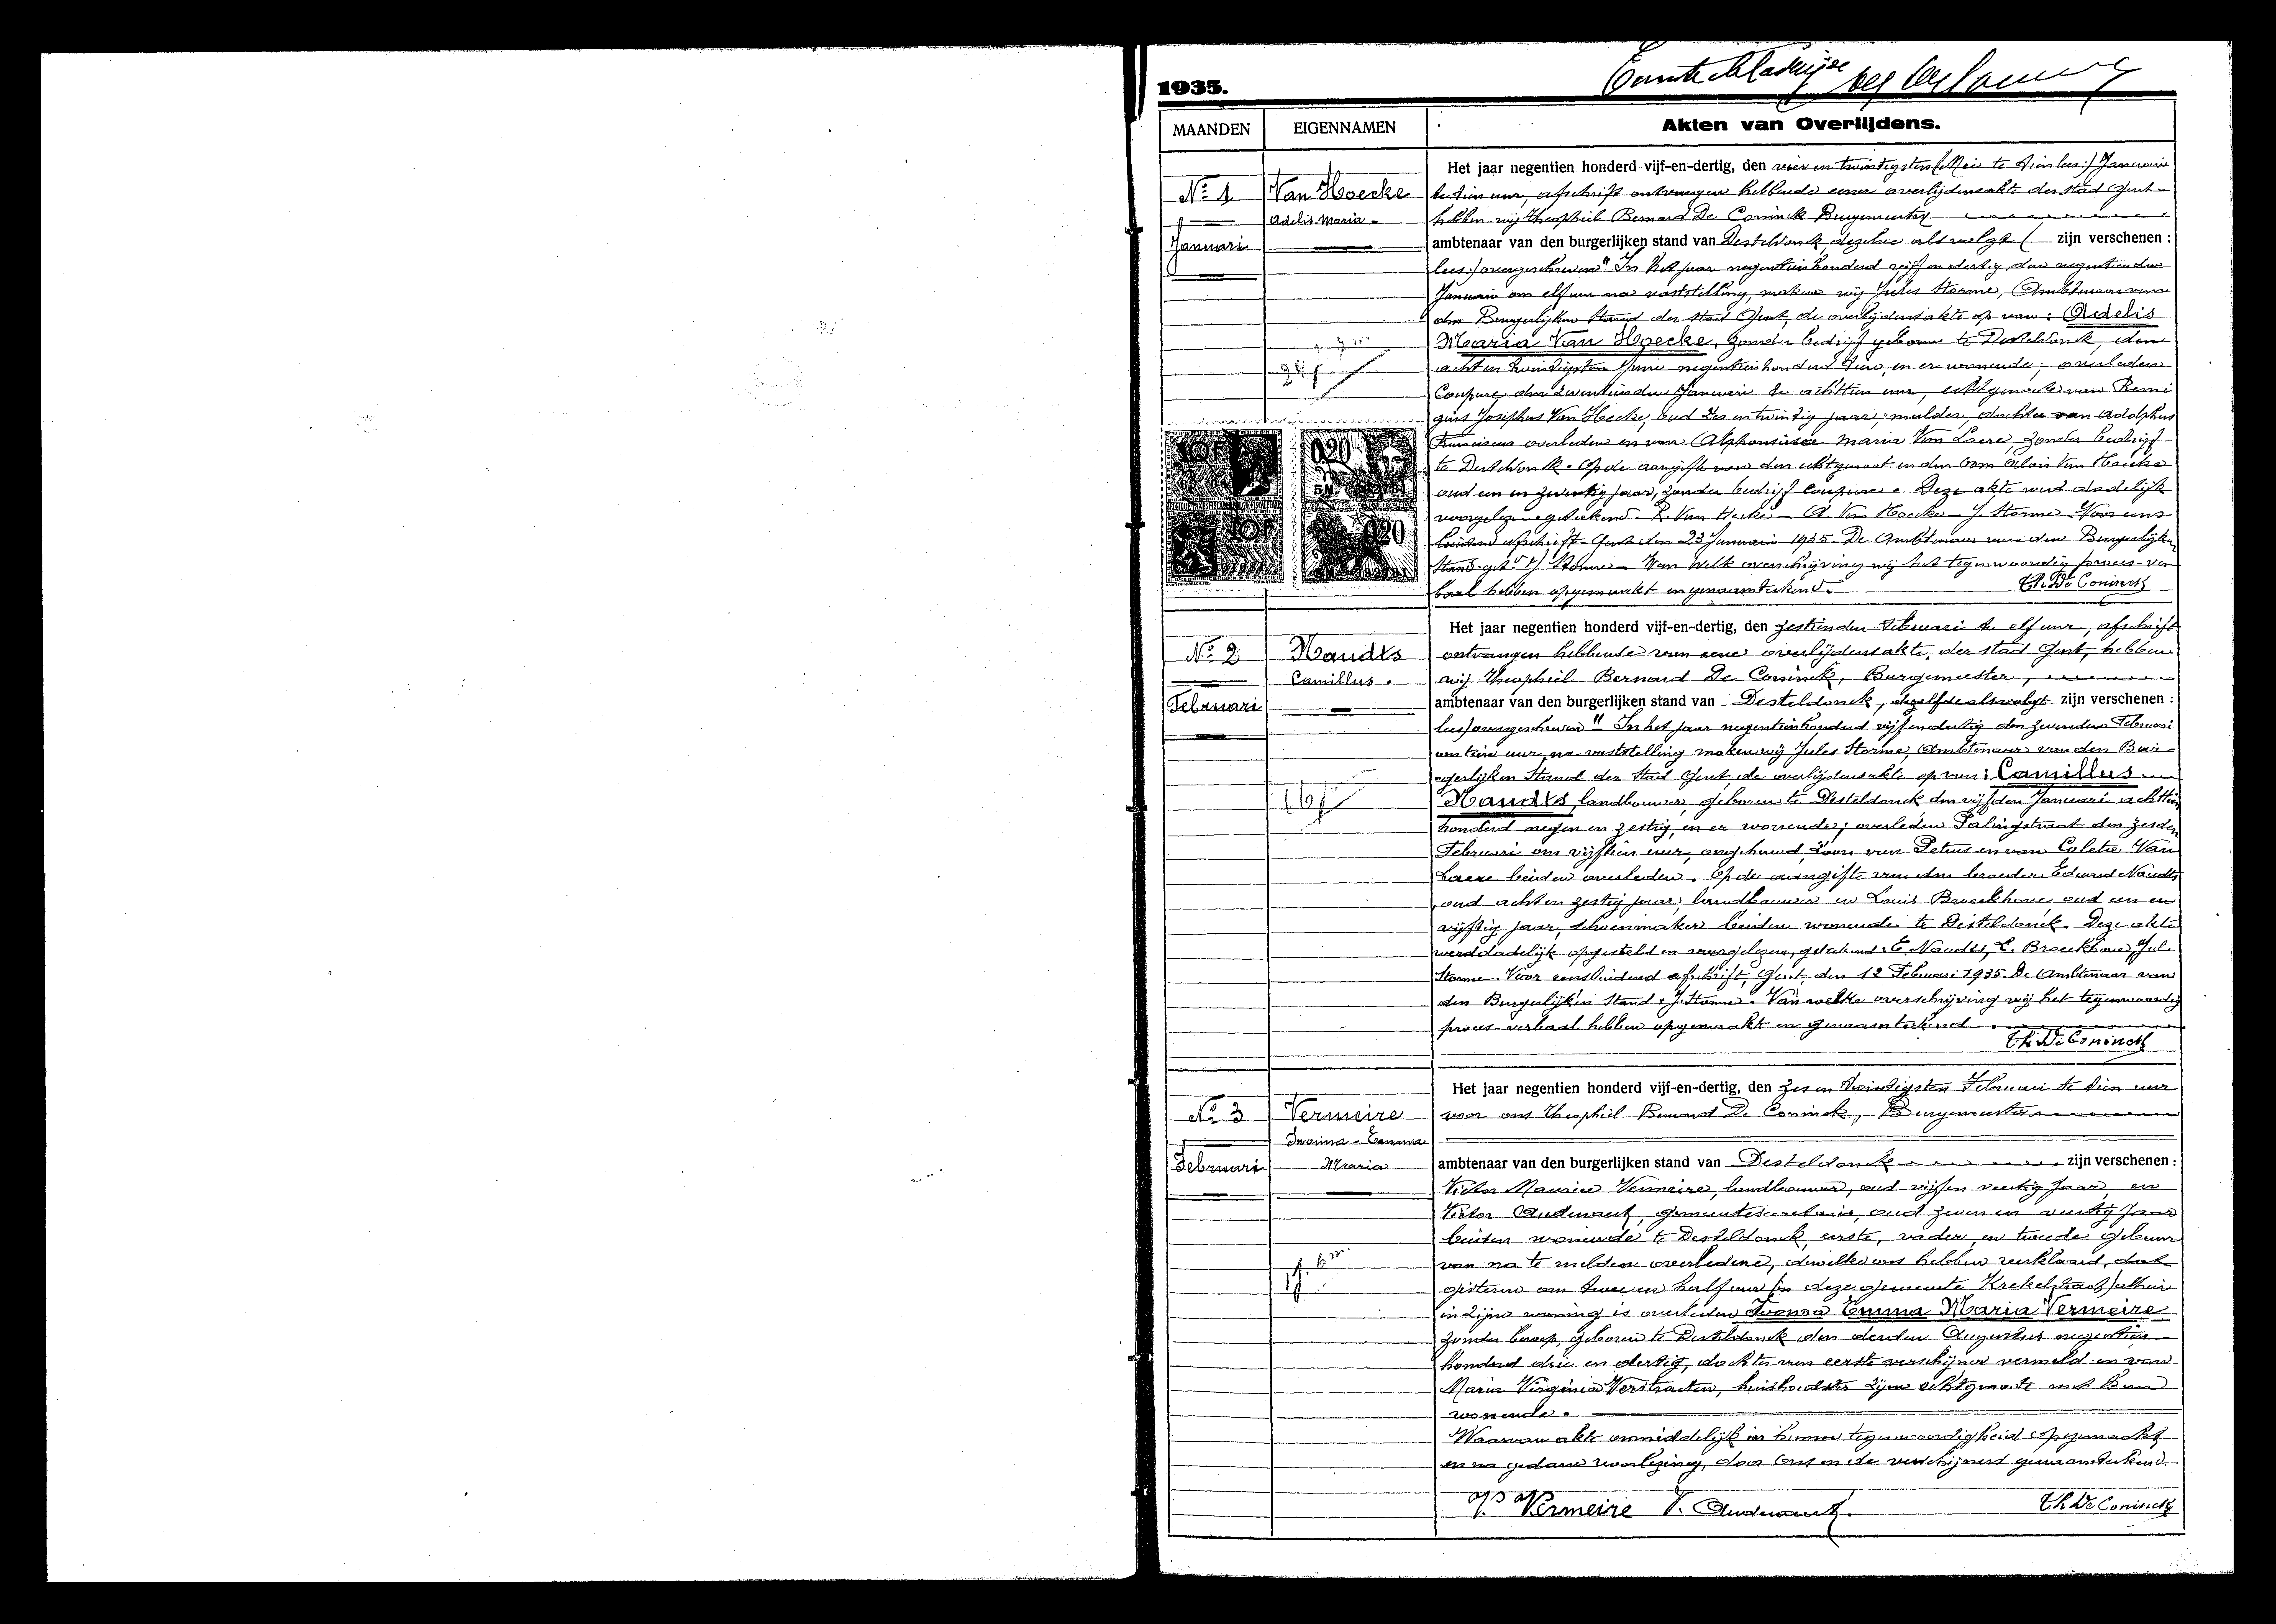 1935.
MAANDEN
EIGENNAMEN
Akten van Overlijdens.
Nº 1
Januari
Van Hoecke
Adelis Maria
Het jaar negentien honderd vijf-en-dertig, den vier en twintigsten Januari
te tien uur, afschrift ontvangen hebbende eener overlijdensakte der stad Gent
hebben wij Theophiel Bernard De Coninck Burgemeester
ambtenaar van den burgerlijken stand van Desteldonck dezelve als volgt ( zijn verschenen :
lees:) overgeschreven " In het jaar negentienhonderd vijf en dertig den negentienden
Januari om elf uur na vaststelling, maken wij Jules Storme, Ambtenaar van
den Burgerlijken Stand der Stad Gent, de overlijdensakte op van : Adelis
Maria Van Hoecke, zonder bedrijf geboren te Desteldonck, den
acht en twintigsten negentienhonderd tien, en er wonende; overleden
Coupure den zeventienden Januari te achttien uur, echtgenoote van Remi
gius Josephus Van Hoecke, oud zes en twintig jaar, mulder, dochter van Adolphus
Franciscus overleden en van Alphonsine Maria Van Laere, zonder bedrijf
te Desteldonk. Op de aangifte van den echtgenoot en den oom Van Hoecke
oud een en zeventig jaar, zonder bedrijf Coupure. Deze akte werd dadelijk
voorgelezen geteekend R. Van Hoecke – A. Van Hoecke – J. Storme Voor eens
luidend afschrift Gent den 23 Januari 1935 De Ambtenaar van den Burgerlijken
Stand get. J. Storme – Van welk overschrijving wij het tegenwoordig proces-ver
baal hebben opgemaakt en genaamteekend.
Th. De Coninck
Nº 2
Februari
Naudts
Camillus.
Het jaar negentien honderd vijf-en-dertig, den zestienden Februari te elf uur, afschrift
ontvangen hebbende van eene overlijdensakte, der stad Gent, hebben
wij Theophiel Bernard De Coninck, Burgemeester,
ambtenaar van den burgerlijken stand van Desteldonck, dezelfde als volgt zijn verschenen :
lees) overgeschreven " In het jaar negentienhonderd vijf en dertig den zevenden Februari
om tien uur, na vaststelling maken wij Jules Storme, Ambtenaar van den Bur-
gerlijken Stand der Stad Gent, de overlijdensakte op van : Camillus
Naudts, landbouwer, geboren te Desteldonck den vijfden Januari achttien
honderd negen en zestig, en er wonende; overleden Palingstraat den zesden
Februari om vijftien uur, ongehuwd, zoon van Petrus en van Coleta Van
Laere beiden overleden. Op de aangifte van den broeder Eduard Naudts
oud acht en zestig jaar, landbouwer en Louis Broeckhove oud een en
vijftig jaar, schoenmaker beiden wonende te Desteldonck. Deze akte
werd dadelijk opgesteld en voorgelezen, geteekend: E. Naudts, L. Broeckhove, Jul.
Storme. Voor eensluidend afschrift, Gent, den 12 Februari 1935. De Ambtenaar van
den Burgerlijken Stand. J. Storme. Van welke overschrijving wij het tegenwoordig
proces-verbaal hebben opgemaakt en genaamteekend.
Th. De Coninck
Nº 3
Februari
Vermeire
Ivonna-Emma
Maria
Het jaar negentien honderd vijf-en-dertig, den zes en twintigsten Februari te tien uur
voor ons Theophiel Bernard De Coninck, Burgemeester
ambtenaar van den burgerlijken stand van Desteldonck zijn verschenen :
Victor Maurice Vermeire, landbouwer, oud vijf en veertig jaar, en
Victor Oudewaert, gemeentesecretaris, oud zeven en veertig jaar
beiden wonende te Desteldonck, eerste, vader, en tweede gebuur
van na te melden overledene, dewelke ons hebben verklaard, dat
gisteren om twee en half uur (in dezer gemeente Krekelstraat) alhier
in zijne woning is overleden Ivonna Emma Maria Vermeire
zonder beroep, geboren te Desteldonck den derden Augustus negentien
honderd drie en dertig, dochter van eerste verschijner vermeld en van
Maria Virginia Verstraeten, huishoudster zijne echtgenoote met hem
wonende.
Waarvan akte onmiddelijk in hunne tegenwoordigheid opgemaakt
en na gedane voorlezing, door Ons en de verschijners genaamteekend.
Vermeire V. Oudewaert. Th De Coninck